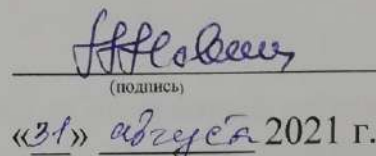 (подпись)
«31» августа 2021 г.